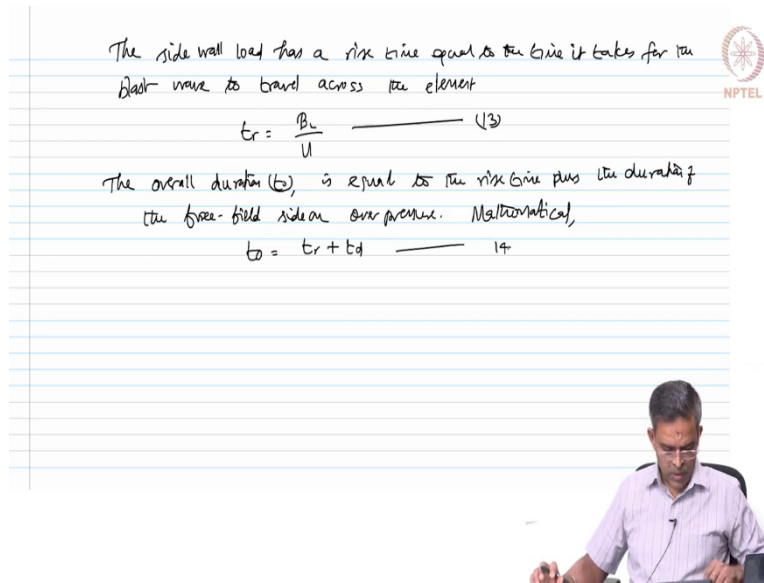 The side wall load has a rise time equal to the time it takes for the
blast wave to travel across the element
tr = BL / U (13)
The overall duration (to), is equal to the rise time plus the duration of
the free-field side on over pressure. Mathematical,
to = tr + td 14
NPTEL